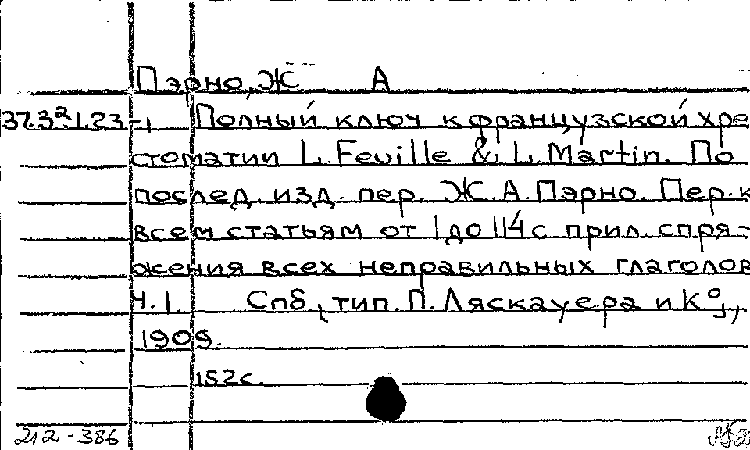 Пэрно, Ж А
37.32.1.23-1 Полный ключ к французской хре
стоматии L. Feuille & L. Martin. По
послед. изд. пер. Ж. А. Пэрно. Пер. к
всем статьям от 1 до 114 с прил. спря-
жения всех неправильных глаголов
Ч. 1. Спб., тип. П. Ляскауера и Кº,
1909.
152 с.
212-386